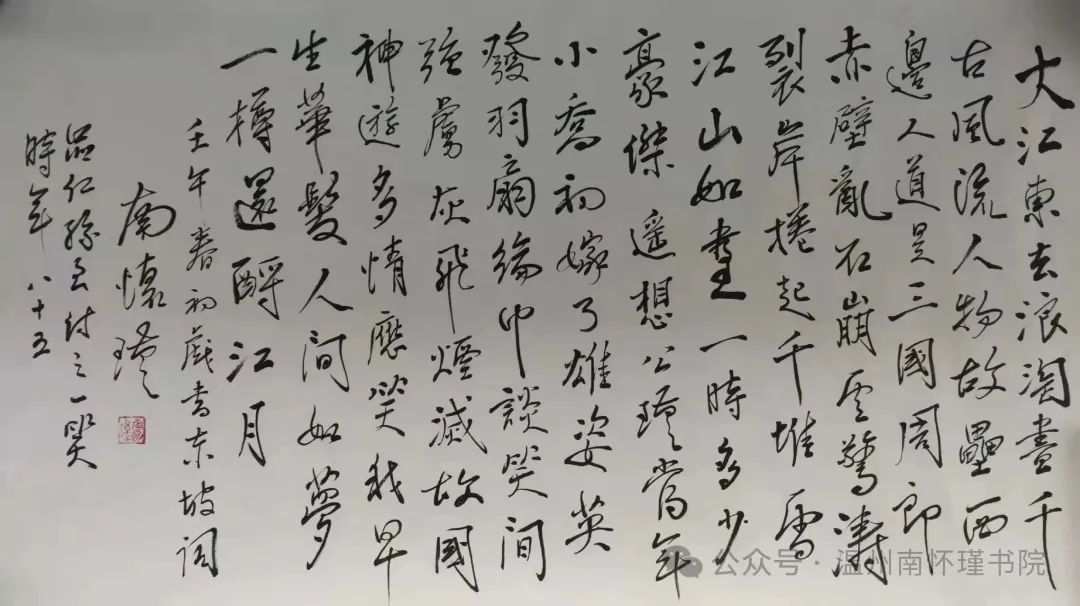 大江東去浪淘盡千
古風流人物故壘西
邊人道是三國周郎
赤壁亂石崩雲驚濤
裂岸捲起千堆雪
江山如畫一時多少
豪傑遙想公瑾當年
小喬初嫁了雄姿英
發羽扇綸巾談笑間
強虜灰飛煙滅故國
神遊多情應笑我早
生華髮人間如夢
一樽還酹江月
壬午春初戲書東坡詞
南懷瑾
品仁孫至付之一笑
時年八十五
公众号 · 温州南怀瑾书院